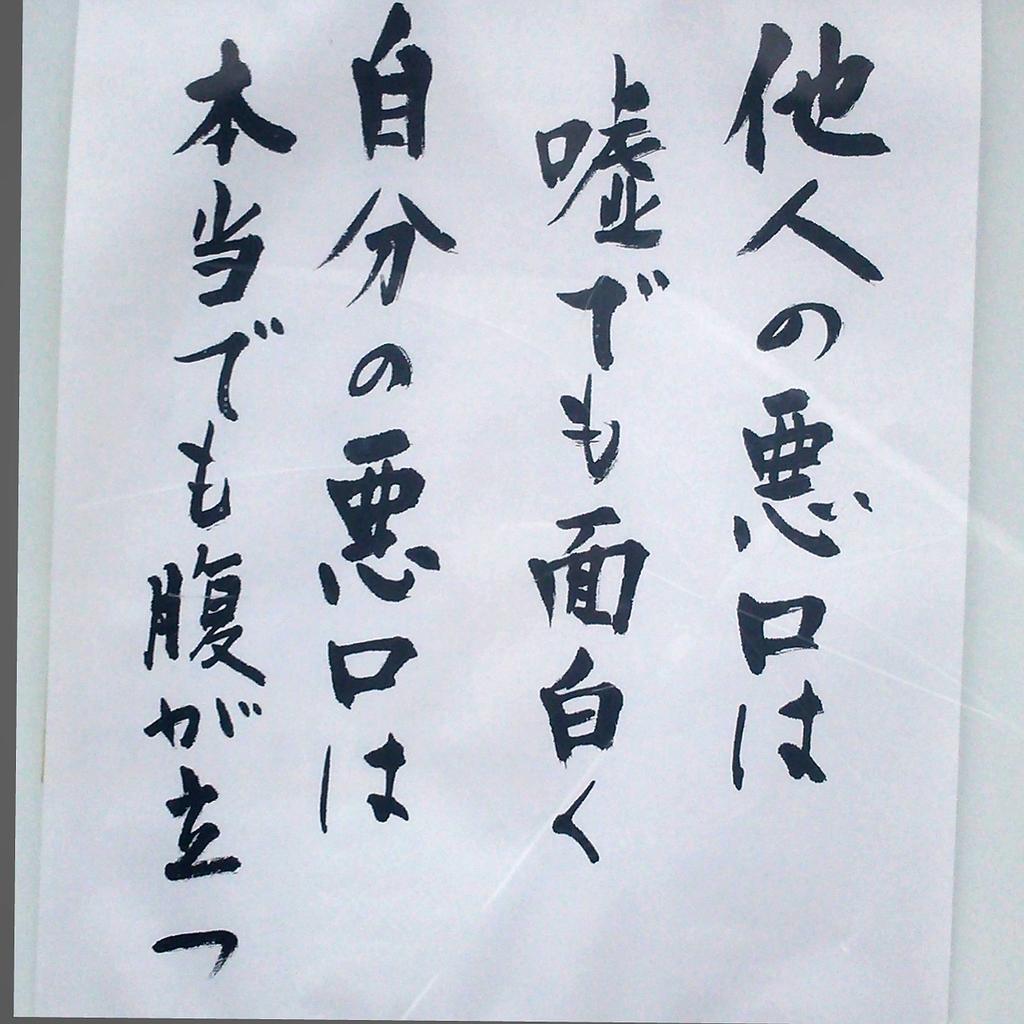 他人の悪口は
嘘でも面白く
自分の悪口は
本当でも腹が立つ